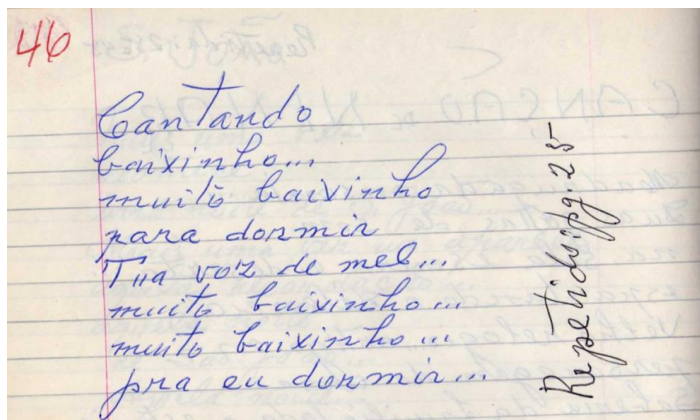 46
Cantando
baixinho...
muito baixinho
para dormir
Tua voz de mel...
muito baixinho...
muito baixinho...
pra eu dormir...
pg. 25